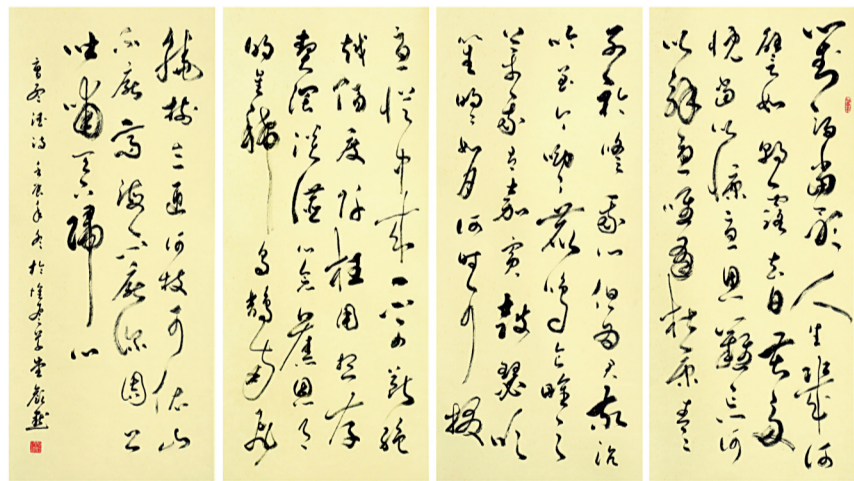 對酒當歌人生幾何
譬如朝露去日苦多
慨當以慷憂思難忘何
以解憂唯有杜康青々
子衿悠々我心但為君故沉
吟至今呦々鹿鳴食野之
苹我有嘉賓鼓瑟吹
笙明々如月何時可掇
憂從中來不可斷絕
越陌度阡枉用相存
契闊談讌心念舊恩月
明星稀烏鵲南飛
繞樹三匝何枝可依山
不厭高海不厭深周公
吐哺天下歸心
壬辰年冬於草堂